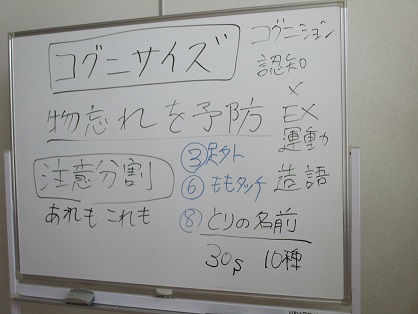 コグニサイズ
物忘れを予防
注意分割
あれも これも
コグニション
認知
×
EX
運動
造語
③足外
⑥ももタッチ
⑧とりの名前
30s 10種